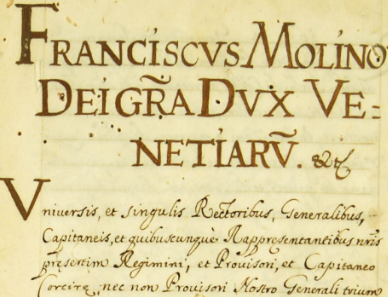 FRANCISCVS MOLINO
DEI GR̃A DVX VE=
NETIARṼ. &c̃
Vniuersis, et singulis Rectoribus, Generalibus,
Capitaneis, et quibuscunque Rappresentantibus nris
presertim Regimini, et Prouisori, et Capitaneo
Corcire, nec non Prouisori Nostro Generali trium